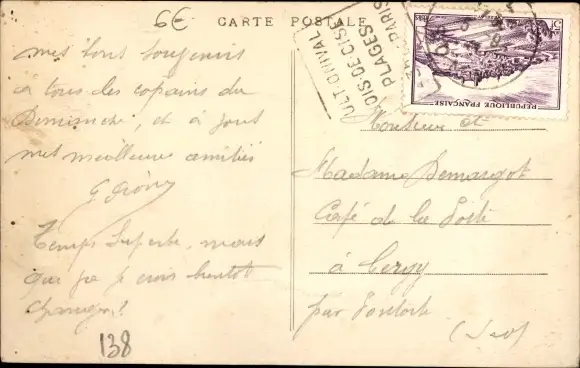 6€ CARTE POSTALE
mes bons souvenirs
à tous les copains du
Dimanche, et à tous
mes meilleures amitiés
G
Temps superbe, mais
que je crois bientôt
changer?
138
AULT ONIVAL
BOIS-DE-CISE
PLAGES
PARIS
5F
REPUBLIQUE FRANÇAISE
Monsieur et
Madame Demargot
Café de la Poste
à Cergy
par Pontoise